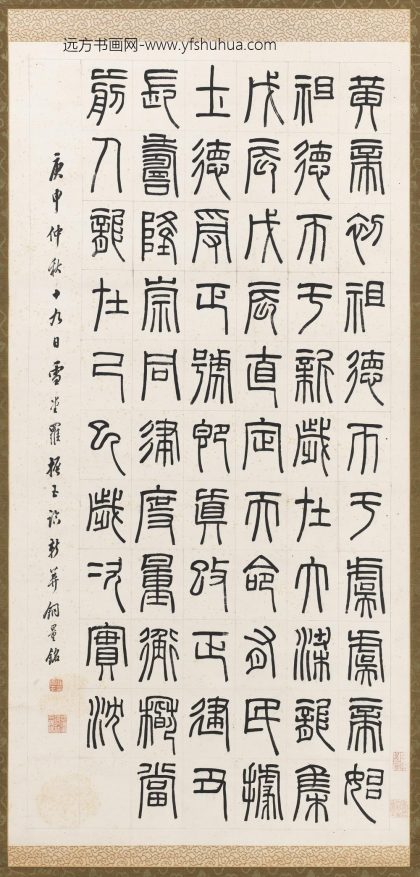 远方书画网-www.yfshuhua.com
黃帝初祖德帀于虞虞帝始
祖德帀于新歲在大梁龍集
戊辰戊辰直定天命有民據
土德受正號即真改正建丑
長壽隆崇同律度量衡稽當
前人龍在己巳歲次實沈
庚申仲秋十九日雪堂羅振玉臨新莽銅量銘